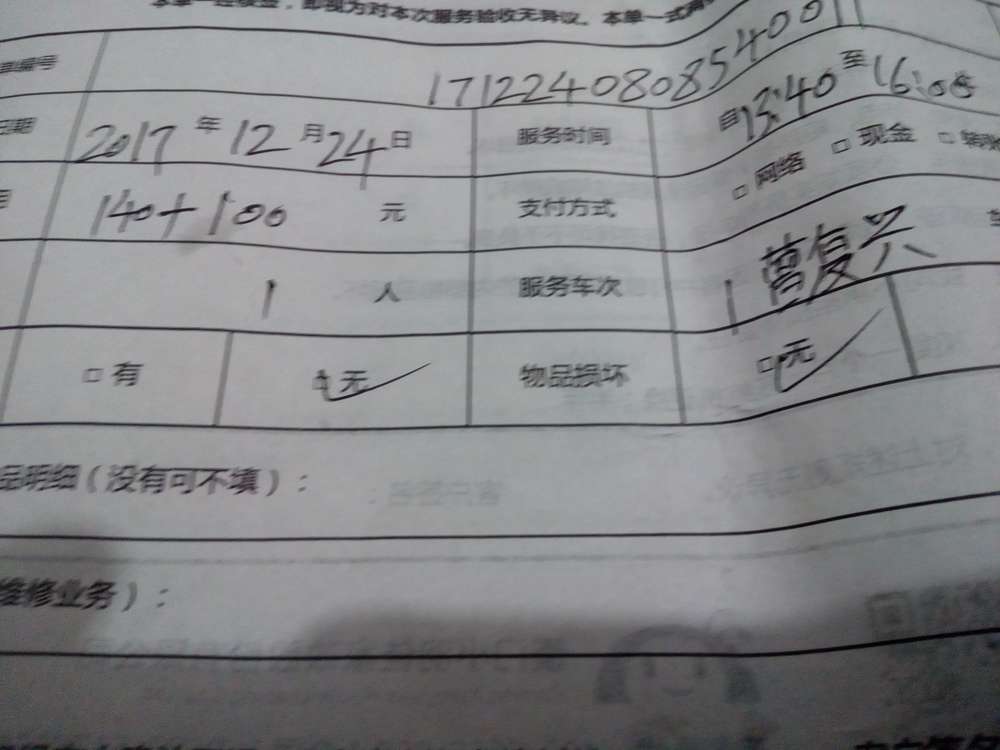 本单一经核金，即视为对本次服务验收无异议。本单一式两
编号 17122408085400
日期 2017年12月24日 服务时间 自13:40至16:08
140+100 元 支付方式 □网络 □现金 □转账
1 人 服务车次 1 营复兴
□有 □无 物品损坏 □无
品明细（没有可不填）：
维修业务）：